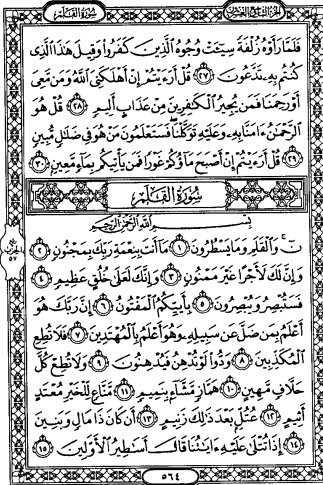 الجزء التاسع والعشرون
سورة القلم
فَلَمَّا رَأَوْهُ زُلْفَةً سِيٓـَٔتْ وُجُوهُ ٱلَّذِينَ كَفَرُوا۟ وَقِيلَ هَٰذَا ٱلَّذِى
كُنتُم بِهِۦ تَدَّعُونَ ٢٧ قُلْ أَرَءَيْتُمْ إِنْ أَهْلَكَنِىَ ٱللَّهُ وَمَن مَّعِىَ
أَوْ رَحِمَنَا فَمَن يُجِيرُ ٱلْكَٰفِرِينَ مِنْ عَذَابٍ أَلِيمٍ ٢٨ قُلْ هُوَ
ٱلرَّحْمَٰنُ ءَامَنَّا بِهِۦ وَعَلَيْهِ تَوَكَّلْنَا فَسَتَعْلَمُونَ مَنْ هُوَ فِى ضَلَٰلٍ مُّبِينٍ
٢٩ قُلْ أَرَءَيْتُمْ إِنْ أَصْبَحَ مَآؤُكُمْ غَوْرًا فَمَن يَأْتِيكُم بِمَآءٍ مَّعِينٍۭ ٣٠
سُورَةُ القَلَمِ
بِسْمِ ٱللَّهِ ٱلرَّحْمَٰنِ ٱلرَّحِيمِ
نٓ وَٱلْقَلَمِ وَمَا يَسْطُرُونَ ١ مَآ أَنتَ بِنِعْمَةِ رَبِّكَ بِمَجْنُونٍ ٢
وَإِنَّ لَكَ لَأَجْرًا غَيْرَ مَمْنُونٍ ٣ وَإِنَّكَ لَعَلَىٰ خُلُقٍ عَظِيمٍ ٤
فَسَتُبْصِرُ وَيُبْصِرُونَ ٥ بِأَييِّكُمُ ٱلْمَفْتُونُ ٦ إِنَّ رَبَّكَ هُوَ
أَعْلَمُ بِمَن ضَلَّ عَن سَبِيلِهِۦ وَهُوَ أَعْلَمُ بِٱلْمُهْتَدِينَ ٧ فَلَا تُطِعِ
ٱلْمُكَذِّبِينَ ٨ وَدُّوا۟ لَوْ تُدْهِنُ فَيُدْهِنُونَ ٩ وَلَا تُطِعْ كُلَّ
حَلَّافٍ مَّهِينٍ ١٠ هَمَّازٍ مَّشَّآءٍۭ بِنَمِيمٍ ١١ مَّنَّاعٍ لِّلْخَيْرِ مُعْتَدٍ
أَثِيمٍ ١٢ عُتُلٍّۭ بَعْدَ ذَٰلِكَ زَنِيمٍ ١٣ أَن كَانَ ذَا مَالٍ وَبَنِينَ
١٤ إِذَا تُتْلَىٰ عَلَيْهِ ءَايَٰتُنَا قَالَ أَسَٰطِيرُ ٱلْأَوَّلِينَ ١٥
٥٦٤